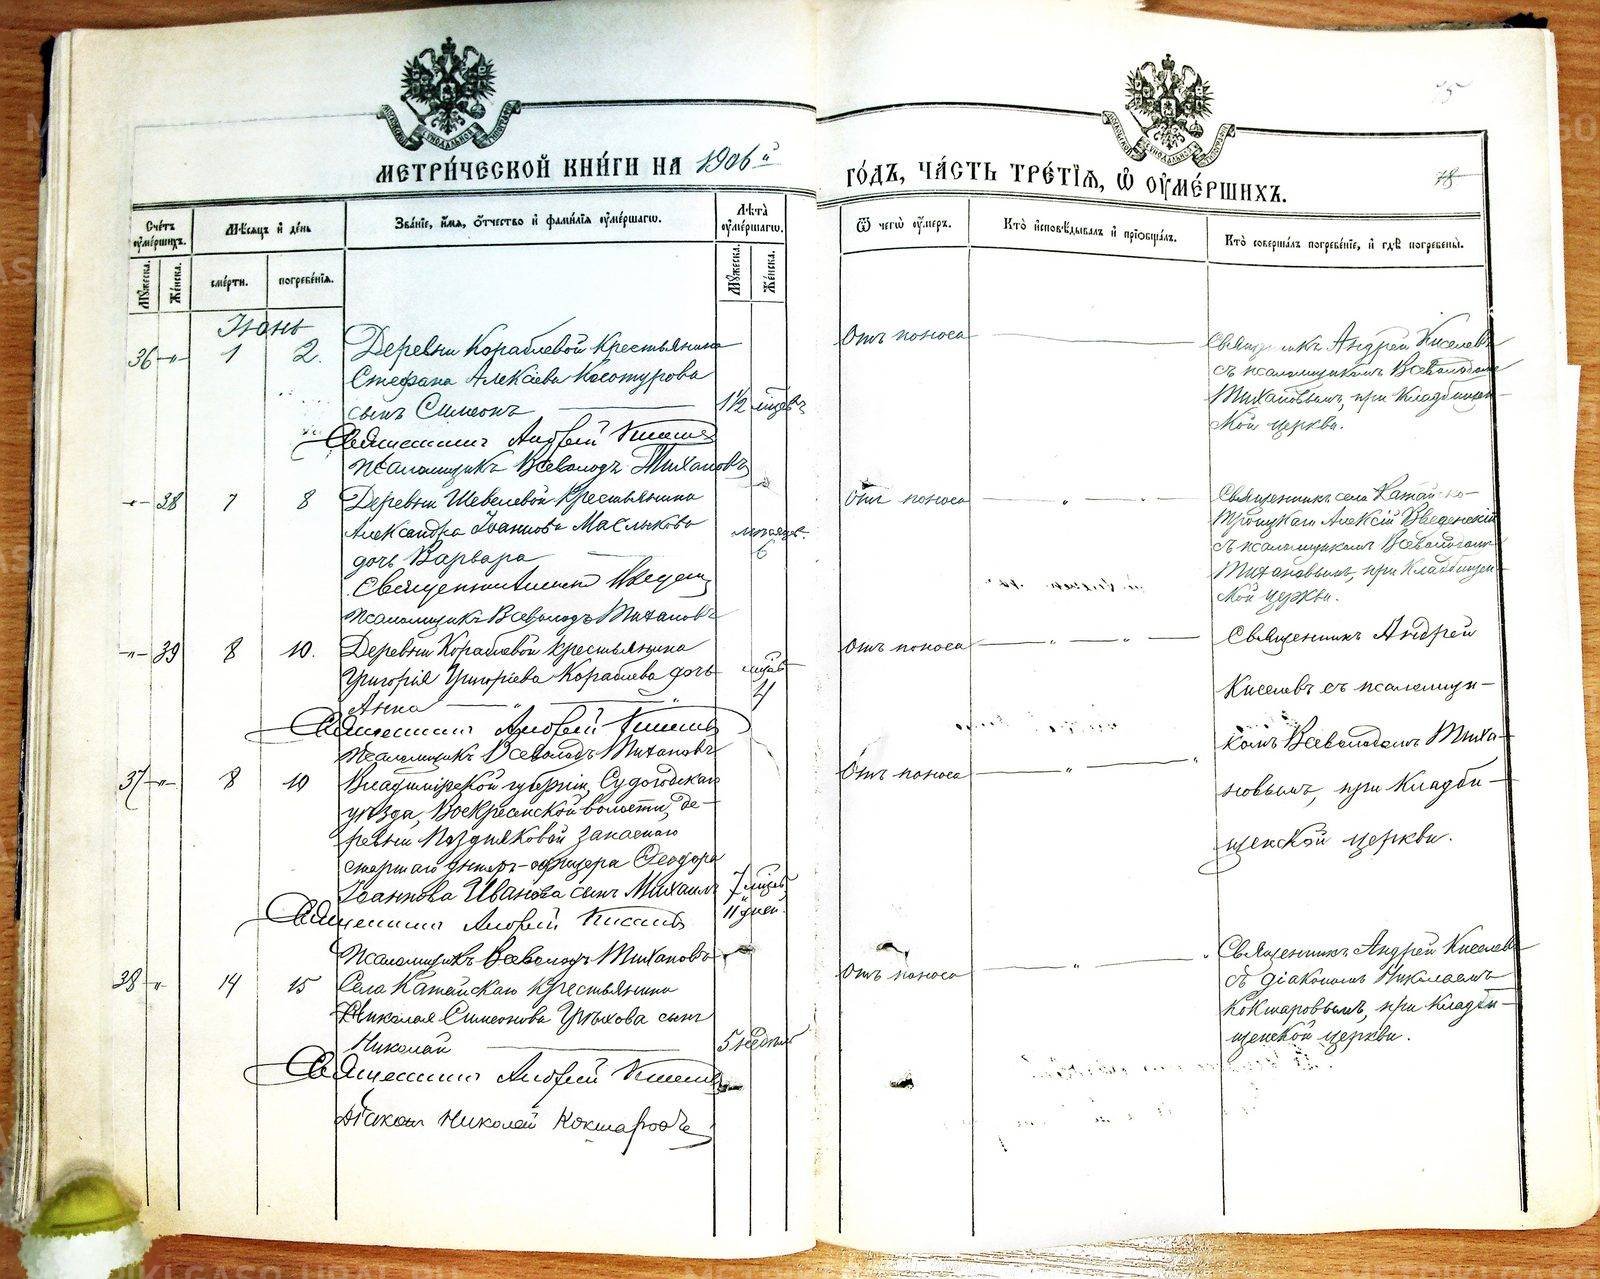 75
МЕТРИ́ЧЕСКОЙ КНИ́ГИ НА 1906й
ГО́ДЪ, ЧА́СТЬ ТРЕ́ТІѦ, Ѽ ОУМЕ́РШИХЪ.
78
Сче́тъ оуме́ршихъ.
Мꙋ́жеска.
Же́нска.
Мѣ́сѧцъ и де́нь
сме́рти.
погребе́нїѧ.
Зва́нїе, и́мѧ, ѻ́тчество и фами́лїѧ оуме́ршагѡ.
Лѣ́та оуме́ршагѡ.
Мꙋ́жеска.
Же́нска.
Ѿ чегѡ̀ оу́меръ.
Кто̀ и́сповѣ́дывалъ и прїобща́лъ.
Кто̀ соверша́лъ погребе́нїе, и гдѣ̀ погребе́ны.
Іюнь
36 -"- 1 2.
Деревни Кораблевой крестьянина
Стефана Алексіева Косотурова
сынъ Симеонъ
1½ мѣсяц.
Священникъ Андрей Киселевъ
Псаломщикъ Всеволодъ Тихановъ
Отъ поноса
Священникъ Андрей Киселевъ
съ псаломщикомъ Всеволодомъ
Тихановымъ, при кладбищен-
ской церкви.
-"- 38 7 8
Деревни Шевелевой крестьянина
Александра Іоаннова Маслыкова
дочь Варвара
6
Псаломщикъ Всеволодъ Тихановъ
Отъ поноса
Священникъ села Катайско-
Троицкаго Алексій Введенскій
съ псаломщикомъ Всеволодомъ
Тихановымъ, при кладбищен-
ской церкви.
-"- 39 8 10.
Деревни Кораблевой крестьянина
Григорія Григоріева Кораблева дочь
Анна
мѣсяц. 4
Священникъ Андрей Киселевъ
Псаломщикъ Всеволодъ Тихановъ
Отъ поноса
Священникъ Андрей
Киселевъ съ псаломщи-
комъ Всеволодомъ Тиха-
новымъ, при кладби-
щенской церкви.
37 -"- 8 10
Владимірской губерніи, Судогодскаго
уѣзда, Воскресенской волости, де-
ревни Поздняковой запаснаго
старшаго унтеръ-офицера Ѳеодора
Іоаннова Иванова сынъ Михаилъ
7 мѣсяц.
11 дней.
Священникъ Андрей Киселевъ
Псаломщикъ Всеволодъ Тихановъ
Отъ поноса
38 -"- 14 15
Села Катайскаго крестьянина
Николая Симеонова Глухова сынъ
Николай
5 недѣль
Священникъ Андрей Киселевъ
Діаконъ Николай Кокшаровъ
Отъ поноса
Священникъ Андрей Киселевъ
съ діакономъ Николаемъ
Кокшаровымъ, при кладби-
щенской церкви.